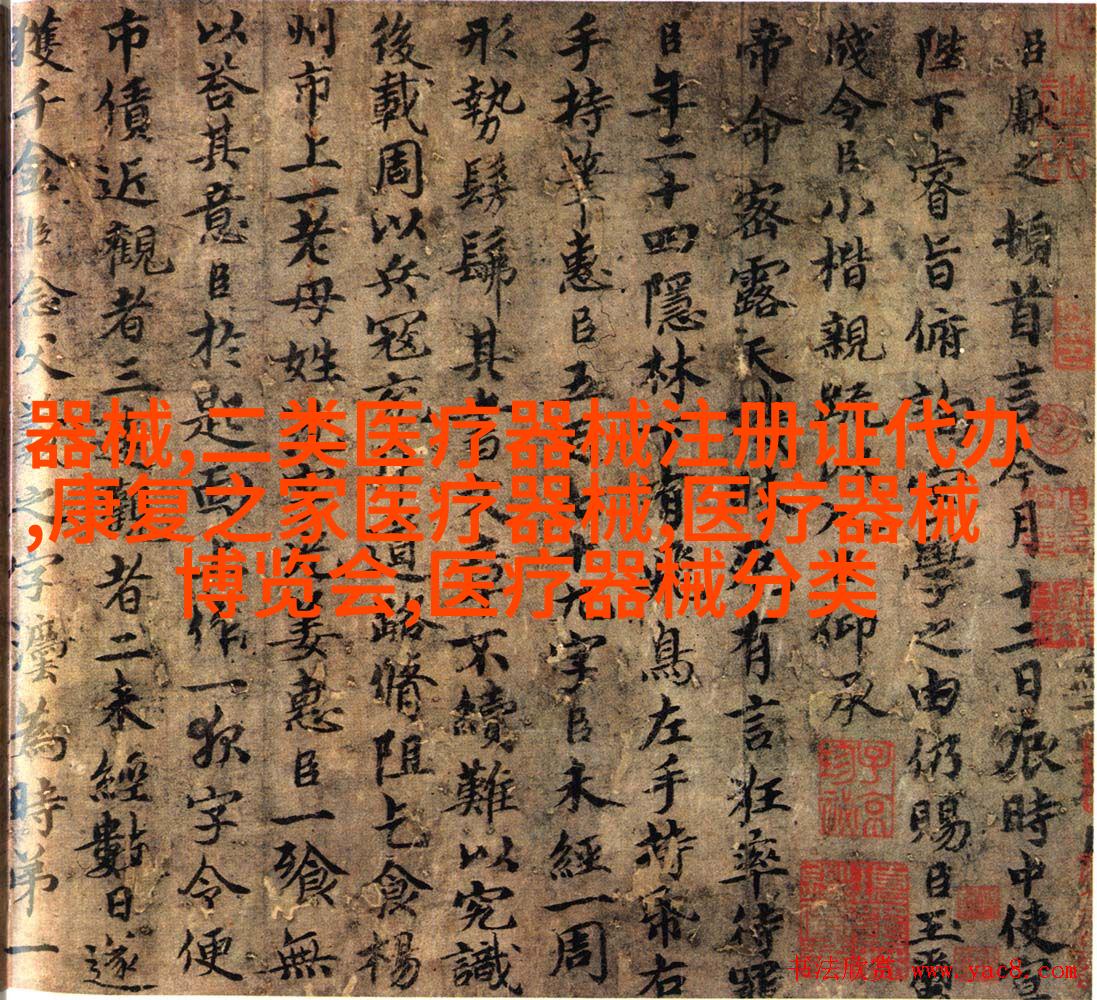 臣獻之頓首言今月十三日辰時中使宣
陛下睿旨俯詢臣學之由仍賜臣玉
臣小楷親疏仰承
帝命密露天有言言狂率待罪
臣年二十四隱林下有鳥左手荷帋右
手持筆惠臣五百十九字臣未經一周
形勢髣髴其書不續難以究識
後載周以兵寇充道路脩阻乞食楊
州市上一老母姓妾惠臣一飱無
以荅其意臣於匙面作一飱字令便
市債近觀者三觀者二未經數日遂
獲千金臣念父之字為時弟一
器械,二类医疗器械注册证代办
,康复之家医疗器械,医疗器械
博览会,医疗器械分类
书法欣赏 www.yac8.com